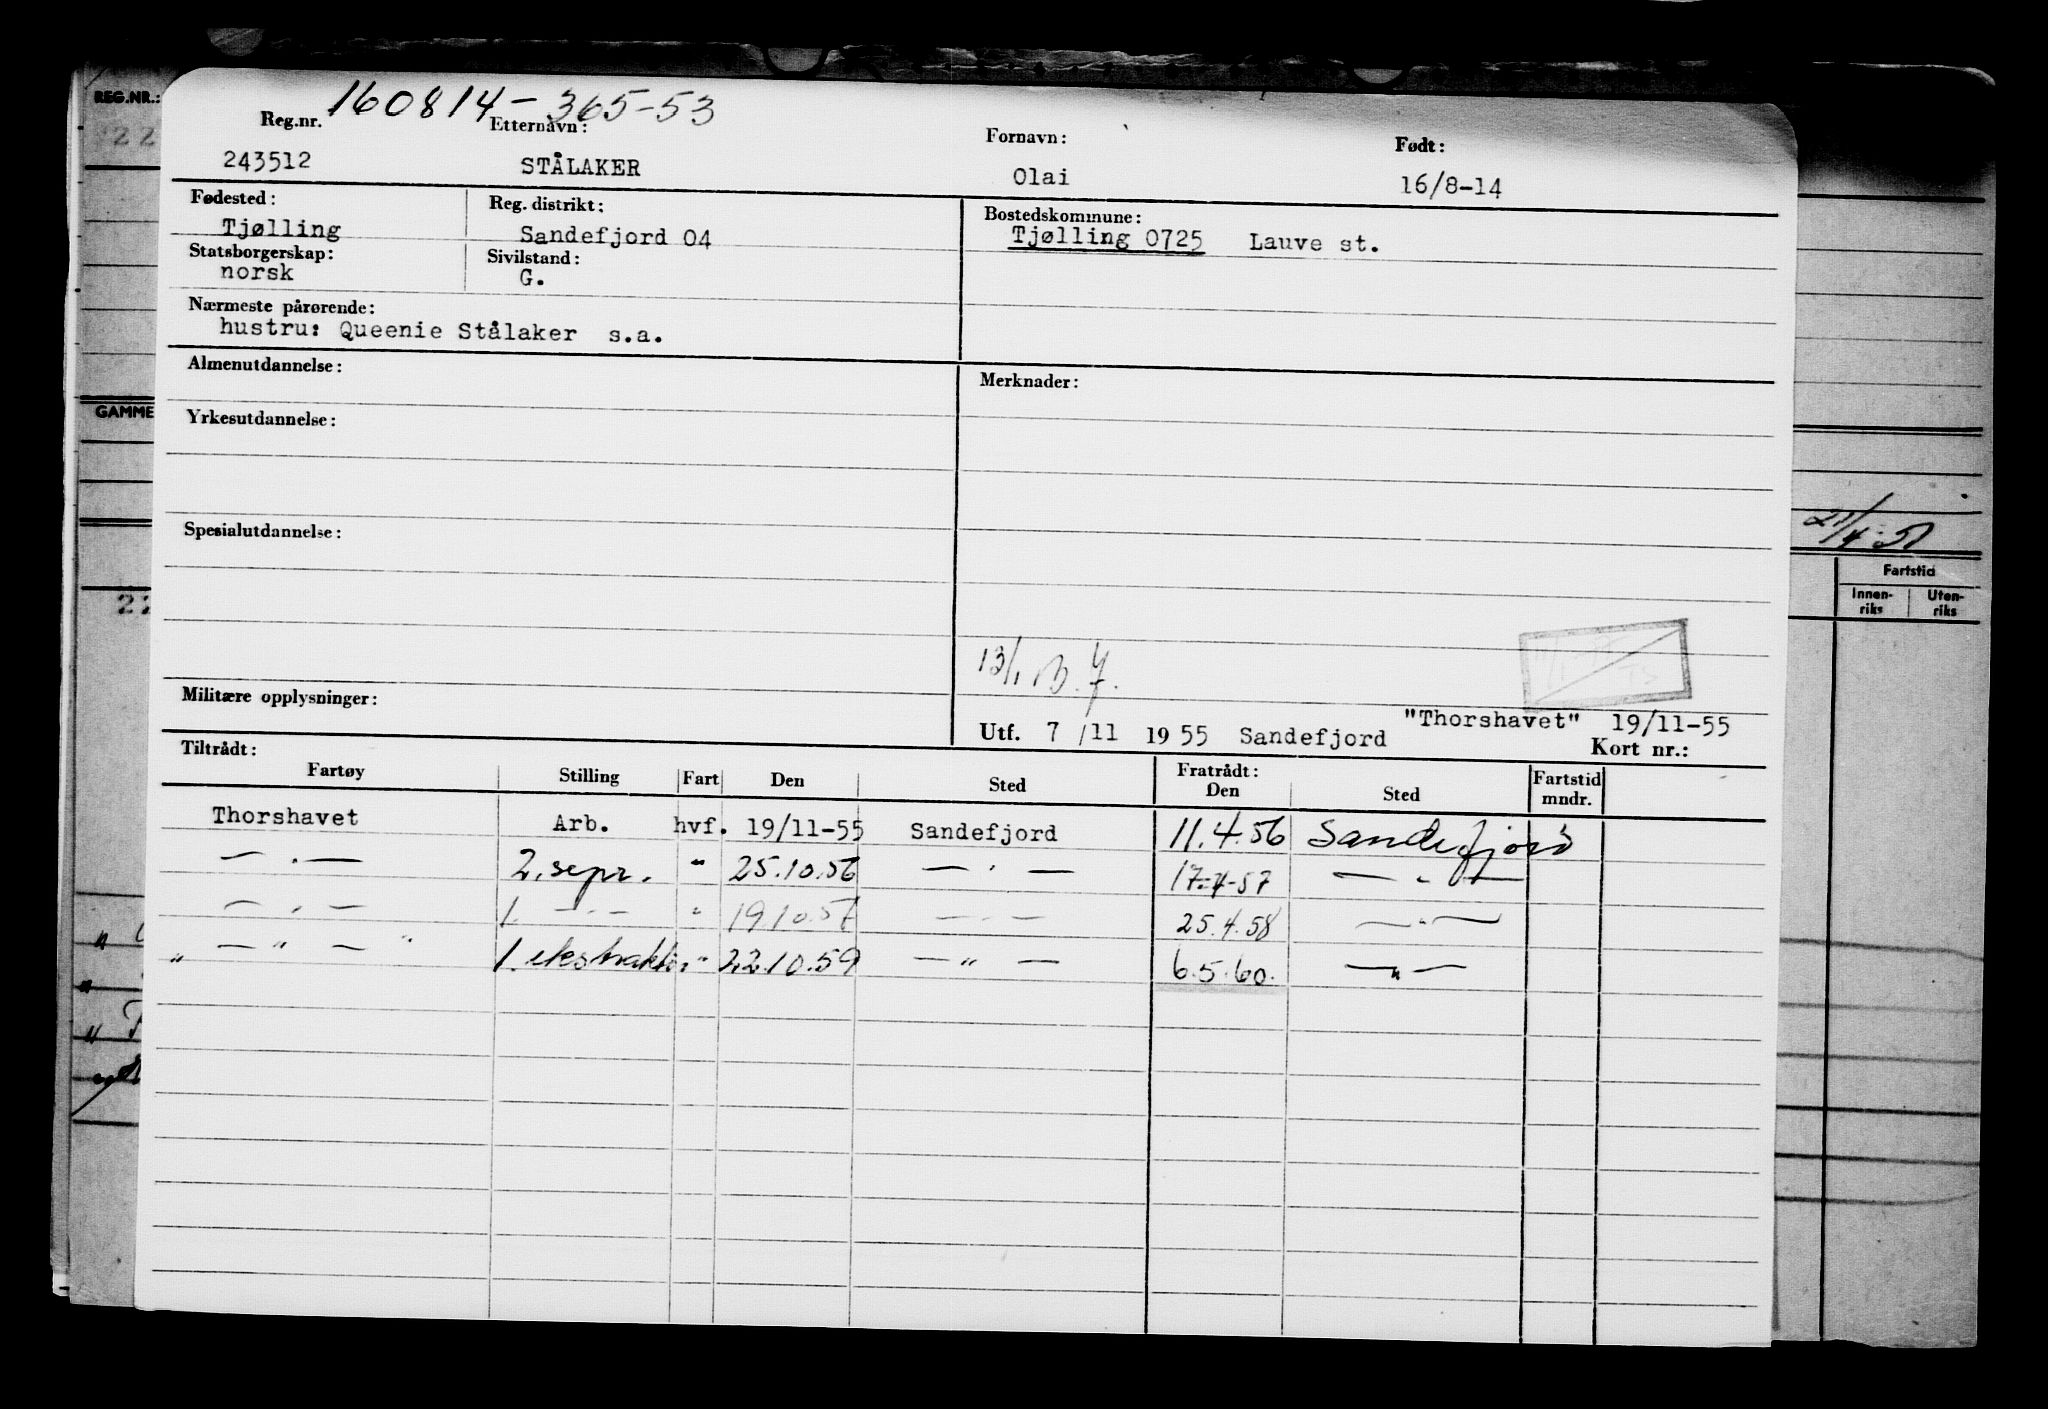 160814-365-53
REG.NR.: Reg.nr. Etternavn: Fornavn: Født:
22 243512 STÅLAKER Olai 16/8-14
Fødested: Reg. distrikt: Bostedskommune:
Tjølling Sandefjord 04 Tjølling 0725 Lauve st.
Statsborgerskap: Sivilstand:
norsk G.
Nærmeste pårørende:
hustru: Queenie Stålaker s.a.
Almenutdannelse: Merknader:
GAMME
Yrkesutdannelse:
Spesialutdannelse:
Fartstid
Innen-riks Uten-riks
22
13/1
Militære opplysninger:
Utf. 7 /11 1955 Sandefjord "Thorshavet" 19/11-55
Kort nr.:
Tiltrådt: Fratrådt:
Fartøy Stilling Fart Den Sted Den Sted Fartstid mndr.
Thorshavet Arb. hvf. 19/11-55 Sandefjord 11.4.56 Sandefjord
— . — 2. sepr. " 25.10.56 — . — 17-4-57 — " —
— . — 1. — . — " 19.10.57 — . — 25.4.58 — " —
" — " — " 1. ekstraktør " 22.10.59 — " — 6.5.60. — " —